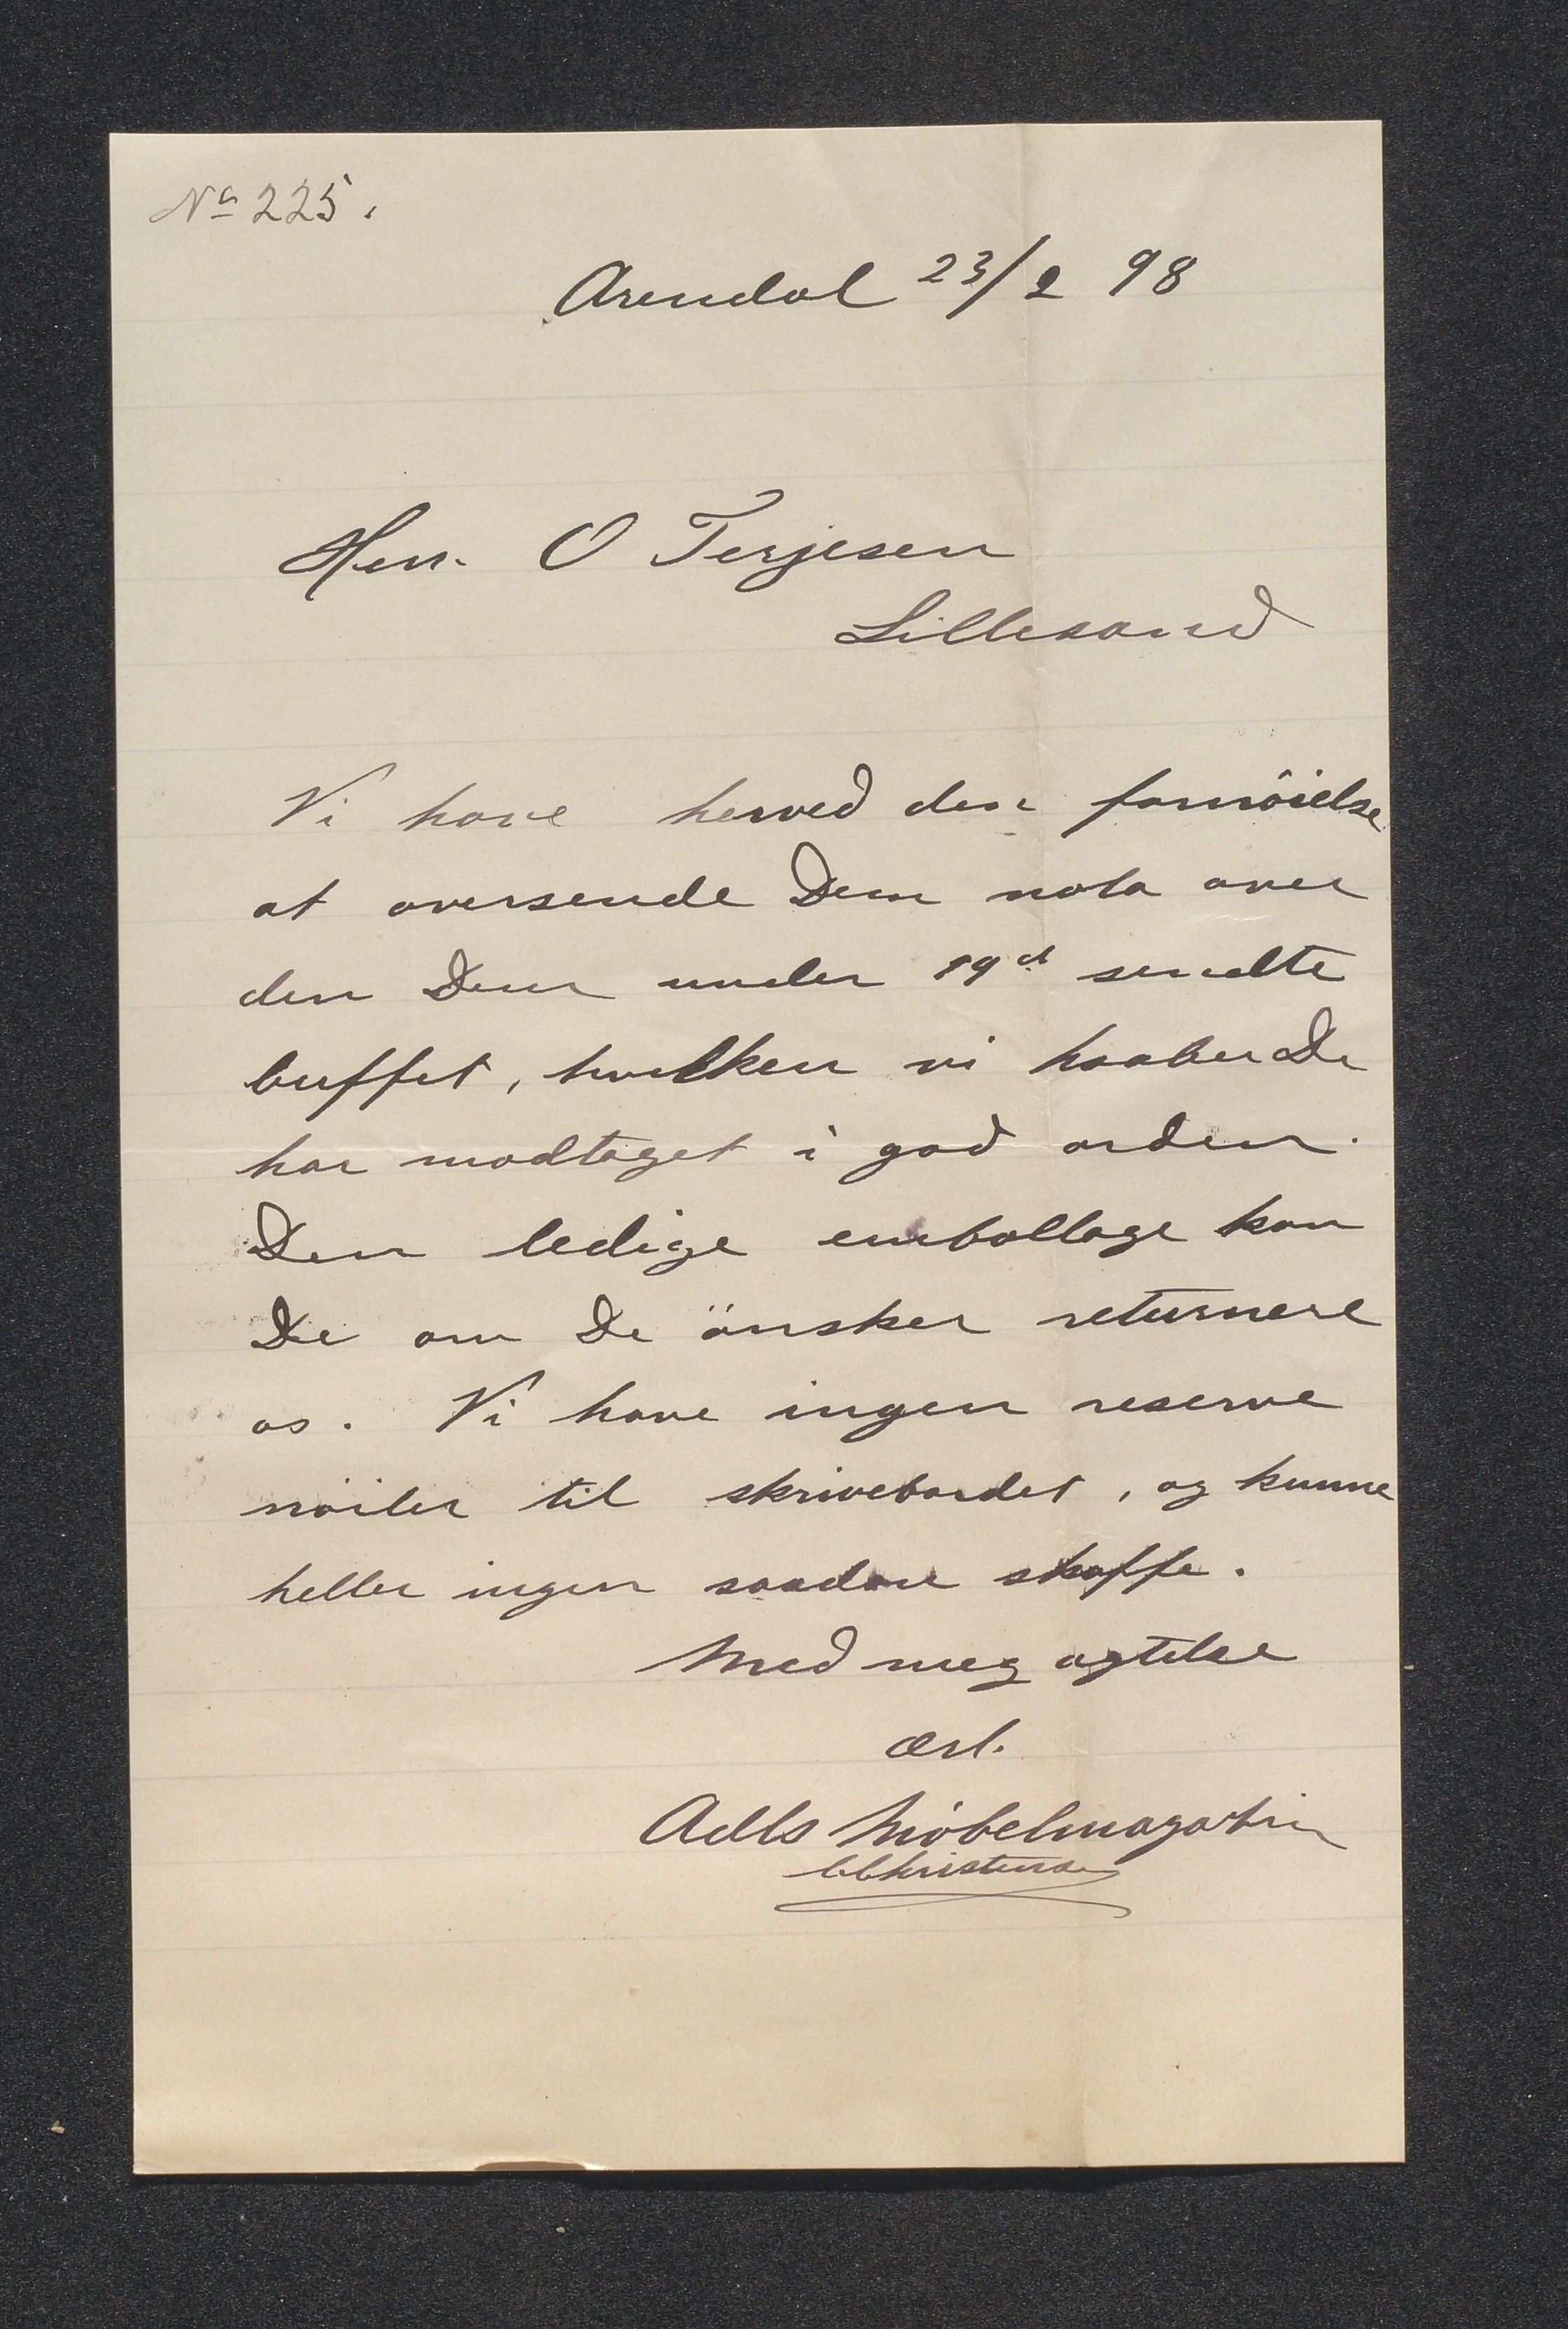 No 225.
Arendal 23/2 98
Herr. O Terjesen
Lillesand
Vi have herved den fornöielse
at oversende Dem nota over
den Dem under 19d sendte
buffet, hvilken vi haaber De
har modtaget i god orden.
Den ledige emballage kan
De om De önsker returnere
os. Vi have ingen reserve
nöiler til skrivebordet, og kunne
heller ingen saadan skaffe.
Med meg agtelse
ærb.
Adls Möbelmagasin
CChristensen